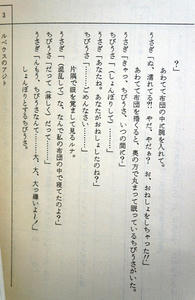 3
ルパウスのアジト
?
あわてて布団の中に腕を入れて。
うさぎ「ね、濡れてる?! やだ、やだぁ? お、おねしょをしちゃった!!」
あわてて布団を捲ると、奥の方で丸まって眠っているちびうさがいた。
うさぎ「きゃっ、ちびうさ、いつの間に?」
ちびうさ「(しょんぼりして)……」
うさぎ「あなたね。あなたがおねしょしたのね?」
ちびうさ「……ごめんなさい」
片隅で眼を覚まして見るルナ。
うさぎ「(混乱して)な、なんで私の布団の中で寝てたのよ?」
ちびうさ「だって(淋しくて)だって……」
うさぎ「んもう、ちびうさなんて……大、大、大っ嫌いよー!」
しょんぼりとするちびうさ。